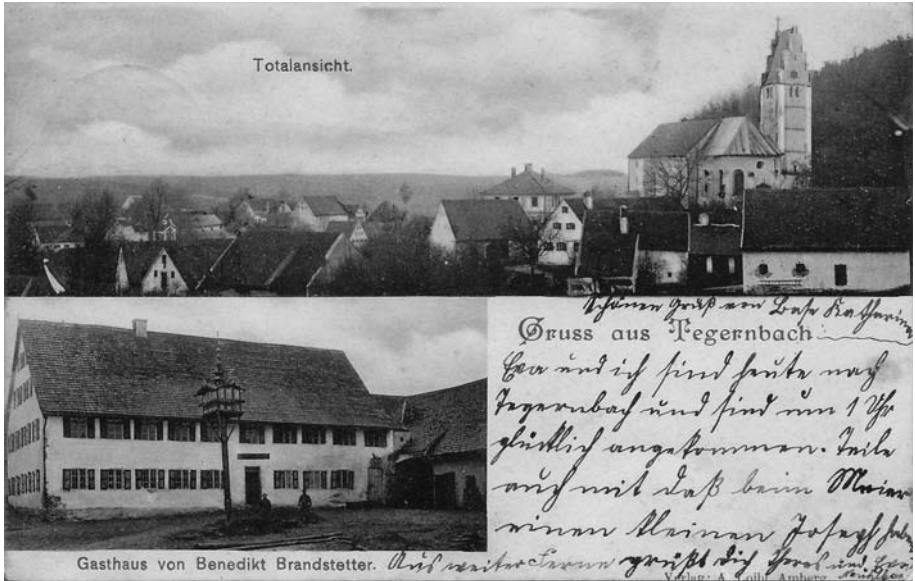 Totalansicht.
Schönen Gruß von Base Katharina
Gruss aus Tegernbach
Eva und ich sind heute nach
Tegernbach und sind um 1 Uhr
glücklich angekommen. Teile
auch mit daß beim Meier
einen kleinen Joseph haben
Gasthaus von Benedikt Brandstetter.
Aus weiter Ferne grüßt Dich Theres und Eva
Verlag: A. Loibl, Amberg